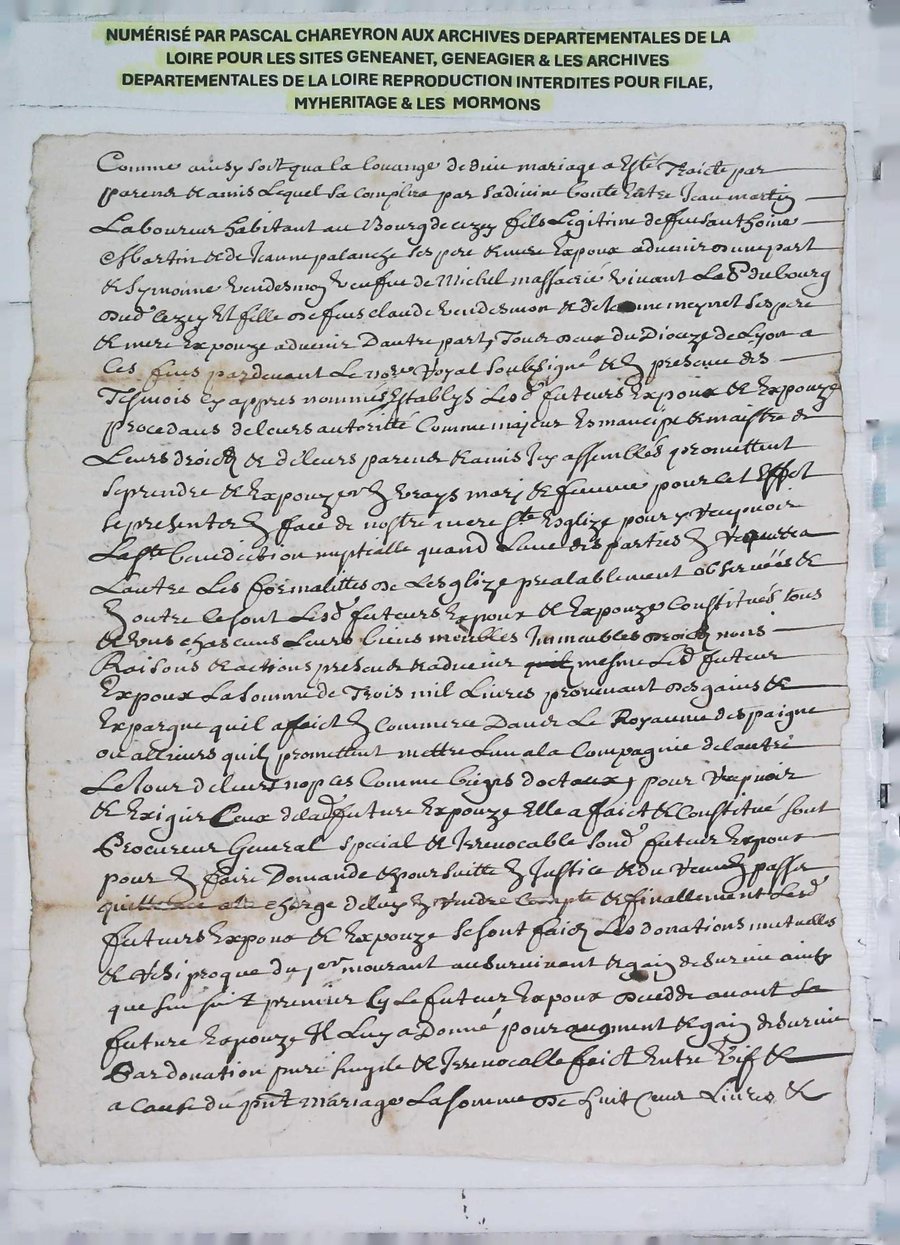 NUMÉRISÉ PAR PASCAL CHAREYRON AUX ARCHIVES DEPARTEMENTALES DE LA
LOIRE POUR LES SITES GENEANET, GENEAGIER & LES ARCHIVES
DEPARTEMENTALES DE LA LOIRE REPRODUCTION INTERDITES POUR FILAE,
MYHERITAGE & LES MORMONS
Comme ainsy soit qua la louange de dieu mariage a esté Traicte par
parens & amis Lequel sa complira par sa divine bonté Entre Jean martin
Laboureur habitant au Bourg de cezey fils Legitime de feu anthoine
Martin & de Jeanne palanche ses pere & mere Expoux advenir dune part
& Symonne Vendesmon veufve de Michel massacrie vivant Le du bourg
dud cezey Et fille de feus claude Vendesmon & de meynet ses pere
& mere Expouze advenir Dautre part, Tous deux du Dioceze de Lyon a
Ces fins pardevant Le nore Royal soubsigné & En presence des
Tesmois cy appres nommés Establys Lesd futeurs Expoux & Expouze
procedans de leurs autorité Comme majeur Esmancipé & maistre de
Leurs droictz & de leurs parens & amis Icy assemblés promettent
se prendre & Expouzer En vrays marj & femme pour cet Effect
se presenter En face de nostre mere ste Esglize pour y Recepvoir
La ste benediction nuptialle quand Lune des parties En Requerra
Lautre Les formalittés de Lesglize prealablement observées &
En outre ce sont Lesd futeurs Expoux & Expouze Constitués tous
& uns chascuns Leurs biens meubles Immeubles droictz noms
Raisons & actions presens & advenir mesme Led futeur
Expoux La somme de Trois mil Livres provenant des gains &
Expargne quil a faict En commerce Dans Le Royaume despaigne
ou allieurs quilz promettent mettre Lun a la Compagnie de lautre
Le Jour de leurs nopces Comme biens doctaux, pour Recepvoir
& Exiger Ceux de lad future Expouze Elle a faict & Constitué sont
Procureur General special & Irrevocable sond futeur Expoux
pour En faire Demande & poursuitte En Justice & du Receu En passer
quittance a la charge de luy En rendre Compte & finallement Lesd
futeurs Expoux & Expouze se sont faictz Les donations mutuelles
& Resiproque du per mourant au survivant & gain de survie
que premier sy Le futeur Expoux decedde avant sa
future Expouze Il Luy a Donné pour augment & gain de survie
Par donation pure simple & Irrevocalle faict Entre vif &
a cause du pnt mariage La somme de huit Cens Livres &